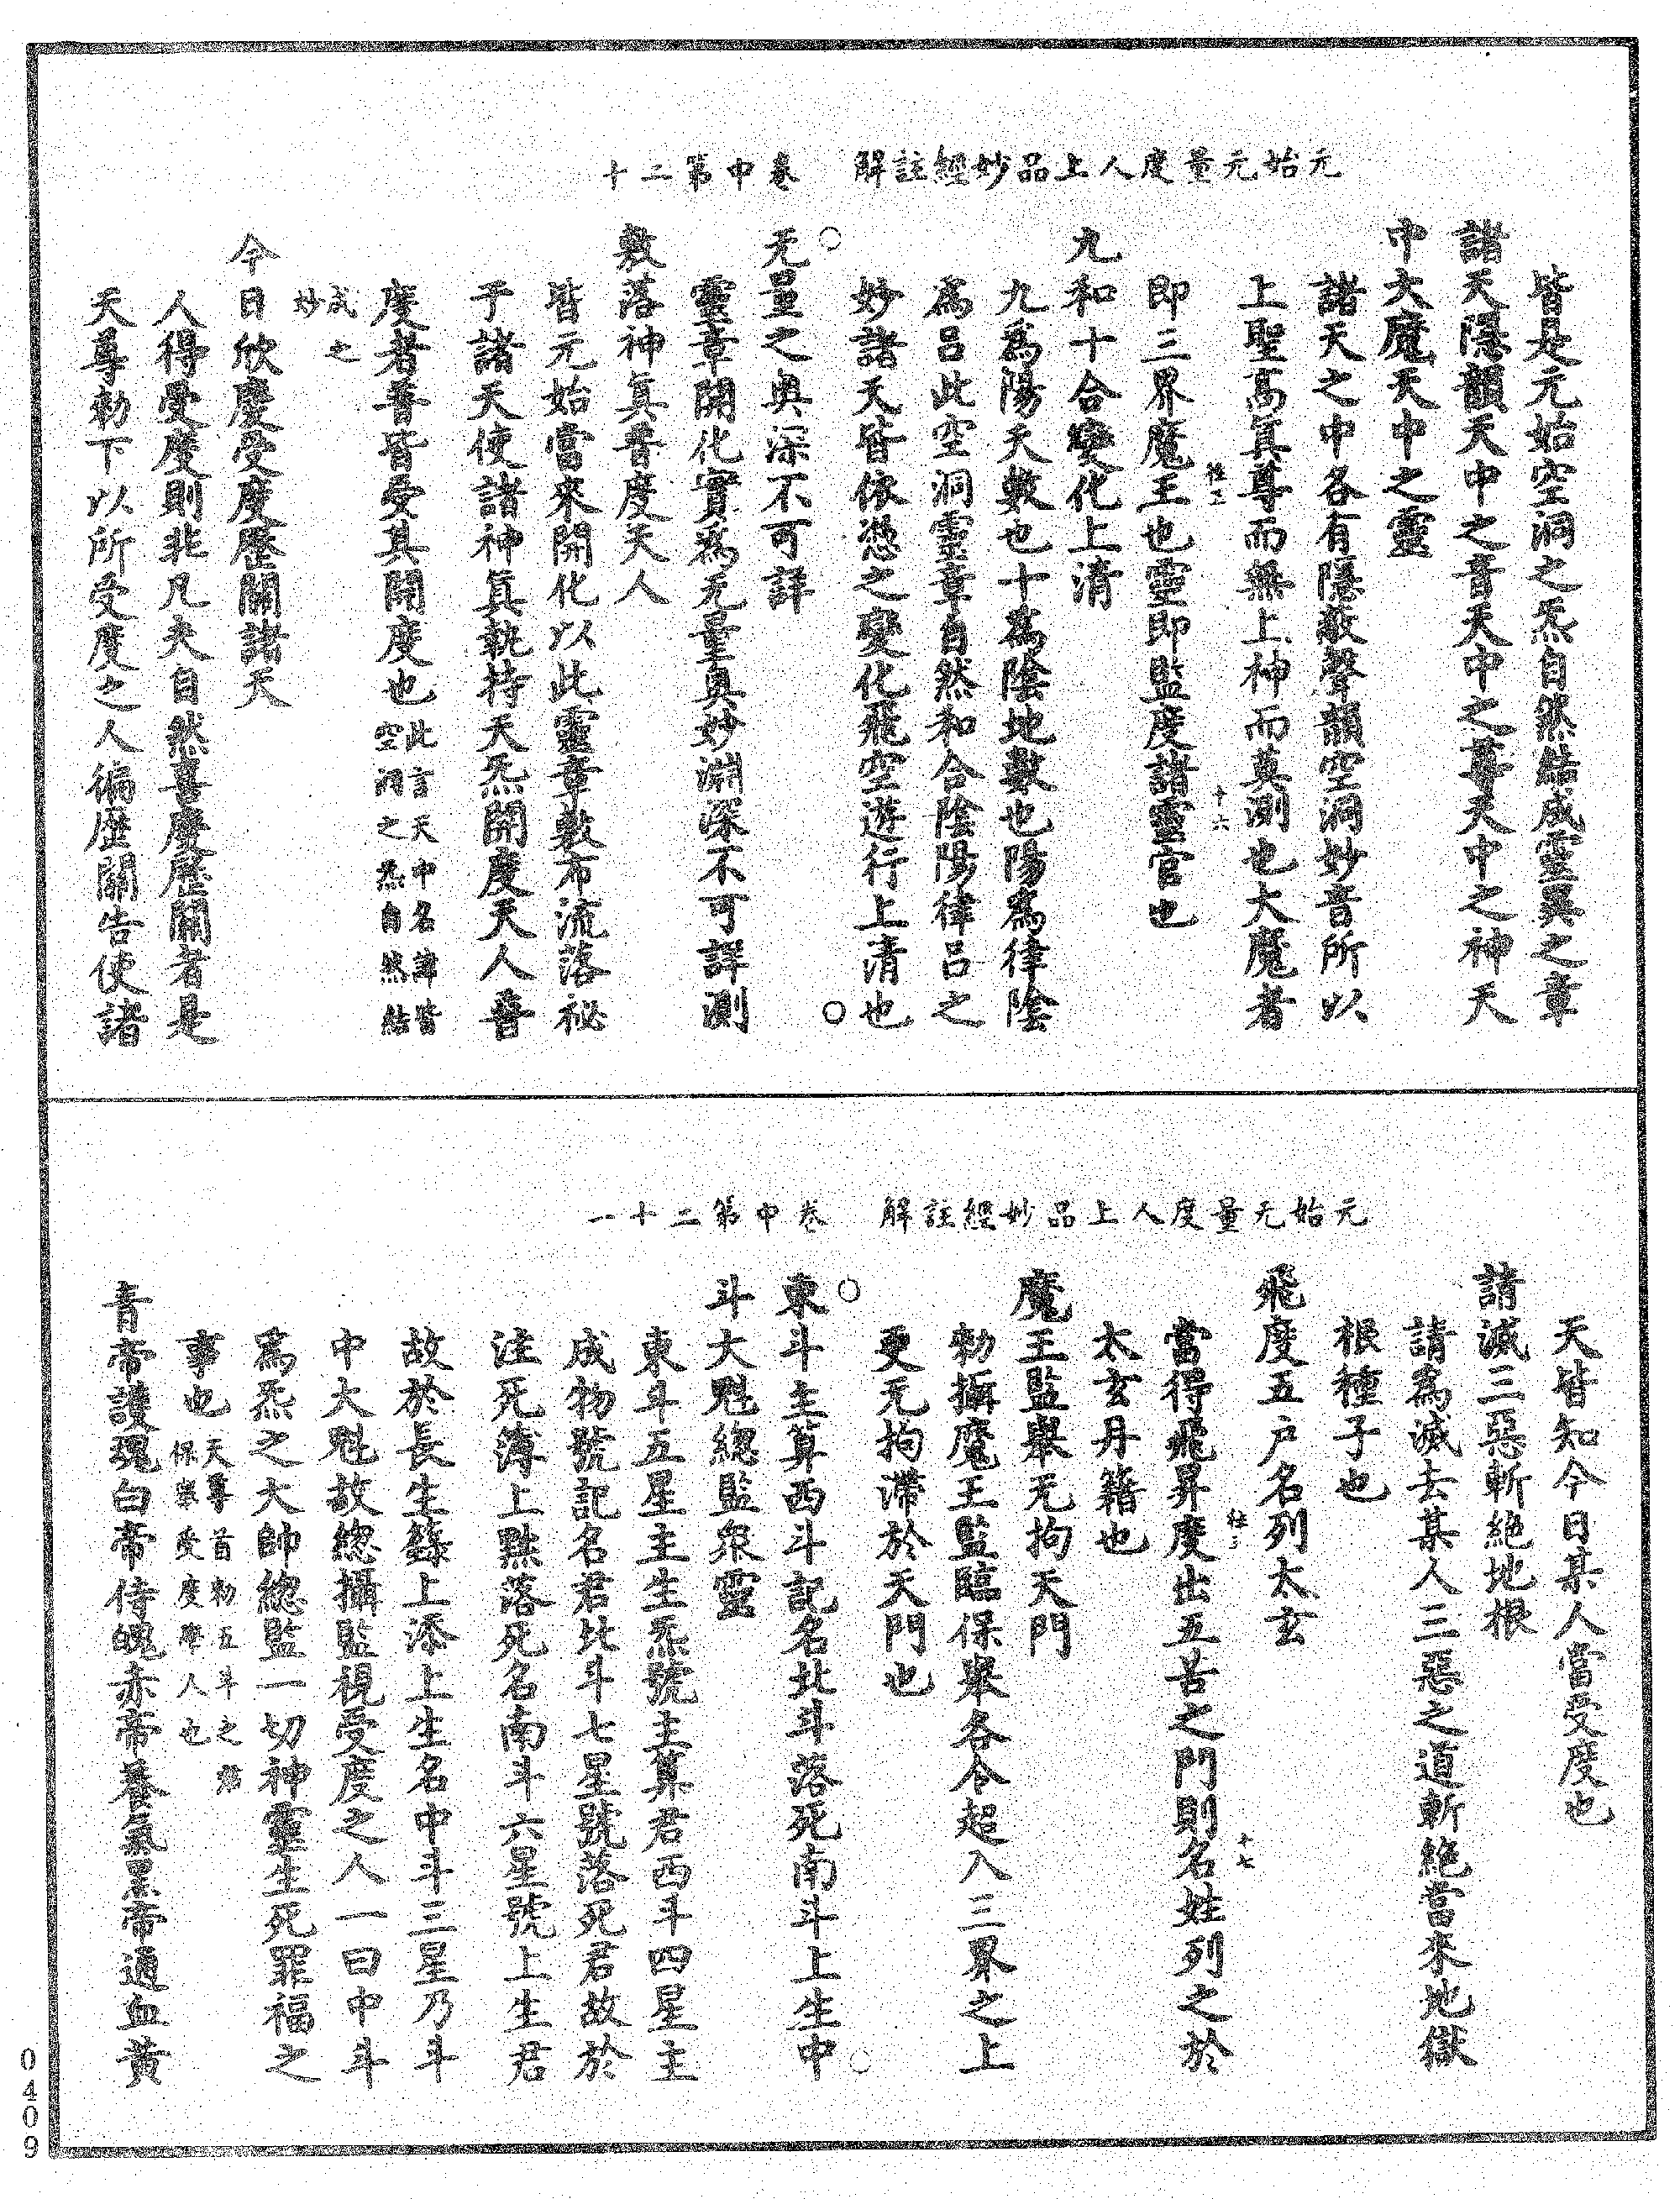 元始无量度人上品妙經註解　卷中第二十
皆是元始空洞之炁自然結成靈異之章
諸天隱韻天中之音天中之尊天中之神天
中大魔天中之靈
諸天之中各有隱敷聲韻空洞妙音所以
上聖高真尊而無上神而莫測也大魔者
即三界魔王也靈即監度諸靈官也
十六
九和十合變化上清
九為陽天數也十為陰地數也陽為律陰
為呂此空洞靈章自然和合陰陽律呂之
妙諸天皆依憑之變化飛空遊行上清也
无量之奧深不可詳
靈章開化實為无量奧妙淵深不可詳測
敷落神真普度天人
皆元始當來開化以此靈章敷布流落祕
于諸天使諸神真執持天炁開度天人普
度者普皆受其開度也此言天中名諱皆
空洞之炁自然結
成之
妙
今日欣慶受度歷關諸天
人得受度則非凡夫自然喜慶歷關者是
天尊勅下以所受度之人徧歷關告使諸
元始无量度人上品妙經註解　卷中第二十一
天皆知今日某人當受度也
請滅三惡斬絕地根
請為滅去某人三惡之道斬絕當來地獄
根種子也
飛度五戶名列太玄
當得飛昇度出五苦之門則名姓列之於
十七
太玄丹籍也
魔王監舉无拘天門
勅攝魔王監臨保舉各令超入三界之上
更无拘滯於天門也
東斗主算西斗記名北斗落死南斗上生中
斗大魁總監眾靈
東斗五星主生炁號主算君西斗四星主
成物號記名君北斗七星號落死君故於
注死簿上黜落死名南斗六星號上生君
故於長生籙上添上生名中斗三星乃斗
中大魁故總攝監視受度之人一曰中斗
為炁之大帥總監一切神靈生死罪福之
事也天尊首勅五斗之
保舉受度學人也
青帝護魂白帝侍魄赤帝養氣黑帝通血黃
0409